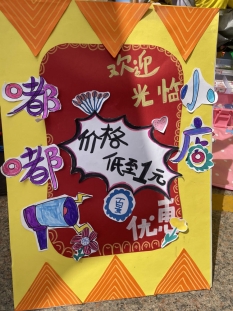 欢迎
光临
小店
嘟嘟
价格
低至1元
优惠